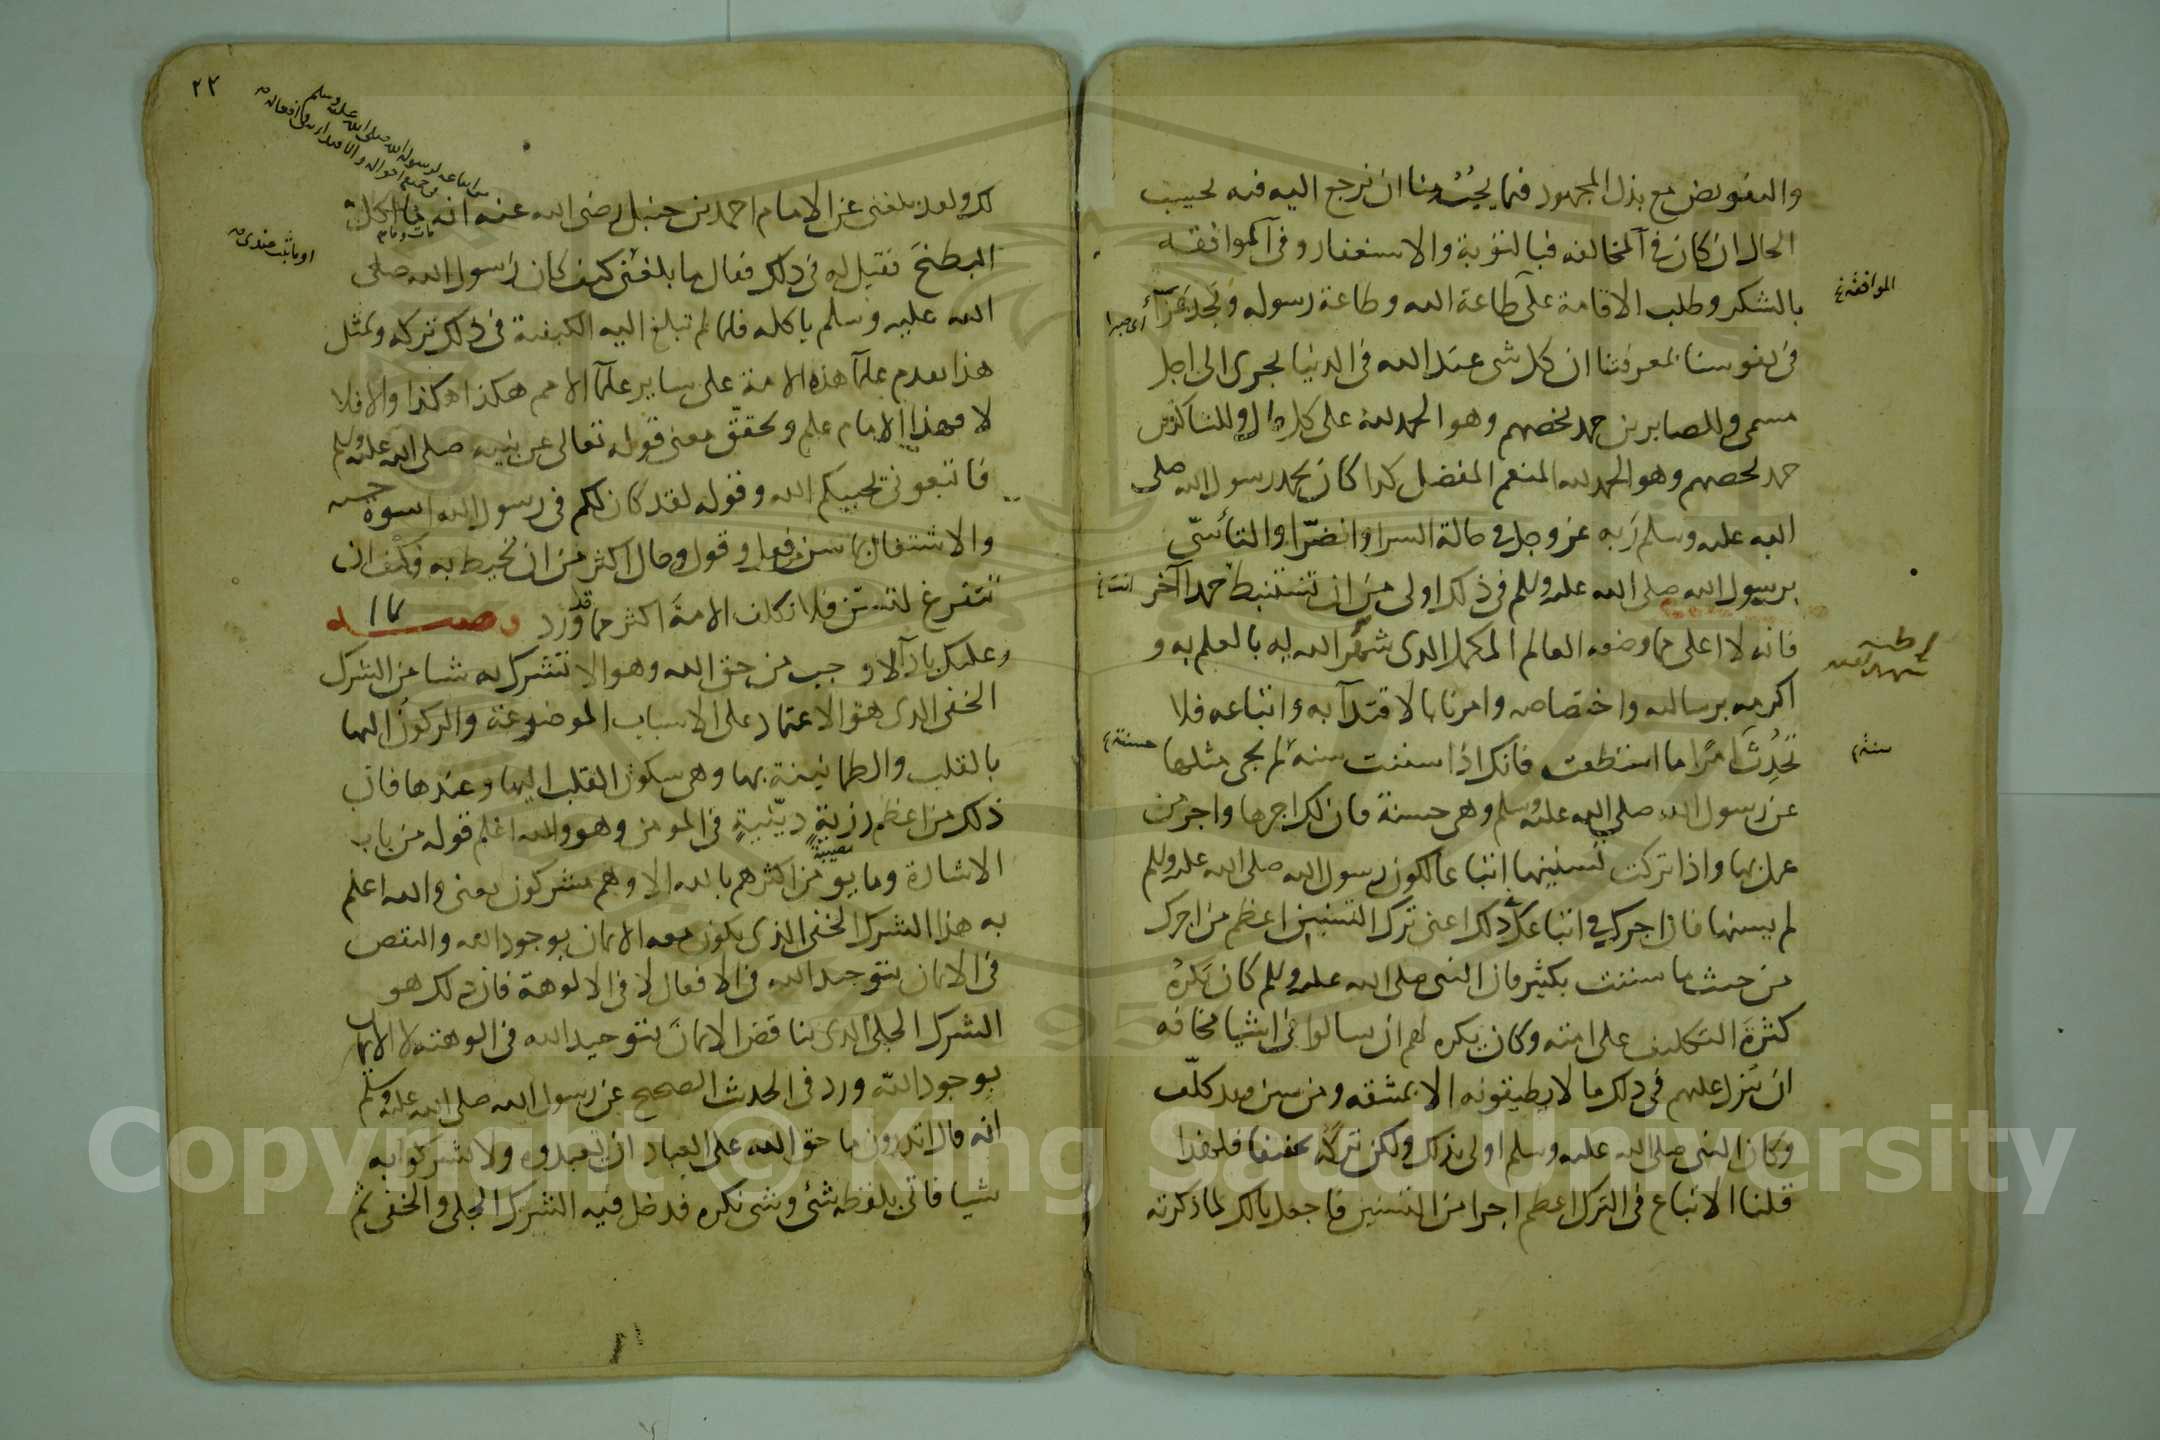 والتفويض مع بذل المجهود فيما يجب منا ان نرجع اليه فيه بحيب
الحال ان كان في المخالفة فبالتوبة والاستغفار وفي الموافقة
بالشكر وطلب الاقامة على طاعة الله وطاعة رسوله ونجد عزآ
في نفوسنا بمعرفتنا ان كل شى عند الله في الدنيا يجرى الى اجل
مسمى وللصابرين حمد يخصهم وهو الحمد لله على كل حال وللشاكرين
حمد يخصهم وهو الحمد لله المنعم المفضل كذا كان يحمد رسول الله صلى
الله عليه وسلم ربه عز وجل في حالة السرا والضرا والتأسّي
برسول الله صلى الله عليه وسلم في ذلك اولى من ان تستنبط حمدا آخر
فانه لا اعلى مما وضعه العالم المكمل الذى شهد الله له بالعلم به و
اكرمه برسالته واختصاصه وامرنا بالاقتدآ به واتباعه فلا
تحدث امرا ما استطعت فانك اذا سننت سنه لم يجى مثلها
عن رسول الله صلى الله عليه وسلم وهى حسنة فان لك اجرها واجر من
عمل بها واذا تركت تسنينها اتباعا لكون رسول الله صلى الله عليه وسلم
لم يسنها فان اجرك في اتباعك ذلك اعنى ترك التسنين اعظم من اجرك
من حيث ما سننت بكثير فان النبى صلى الله عليه وسلم كان يكره
كثرة التكليف على امته وكان يكره لهم ان يسالوا في اشيا مخافه
ان ينزل عليهم في ذلك ما لا يطيقونه الا بمشقه ومن سن فقد كلّف
وكان النبى صلى الله عليه وسلم اولى بذلك ولكن تركه تخفيفا فلهذا
قلنا الاتباع في الترك اعظم اجرا من التسنين فاجعل بالك لما ذكرته
الموافقة خ
أى صبرا
انت خ
سنة خ
حسنة خ
٢٢
لك ولقد بلغنى عن الامام احمد بن حنبل رضى الله عنه انه ما اكل
البطيخ فقيل له في ذلك فقال ما بلغنى كيف كان رسول الله صلى
الله عليه وسلم ياكله فلما لم تبلغ اليه الكيفية في ذلك تركه وبمثل
هذا تقدم علمآ هذه الامة على ساير علمآ الامم هكذا هكذا والا فلا
لا فهذا الامام علم وتحقق معنى قوله تعالى عن نبيه صلى الله عليه وسلم
فاتبعونى يحببكم الله وقوله لقد كان لكم في رسول الله اسوة حسنه
والاشتغال بما سن من فعل وقول وحال اكثر من ان نحيط به فكيف ان
نتفرغ لنسن فلا نكلف الامة اكثر مما قد ورد وصيه
وعليك بادآ الاوجب من حق الله وهو الا تشرك به شيا من الشرك
الخفى الذى هو الاعتماد على الاسباب الموضوعة والركون اليها
بالقلب والطمانينة بها وهى سكون القلب اليها وعندها فان
ذلك من اعظم رزية دينية في المومن وهو والله اعلم قوله من باب
الاشارة وما يومن اكثرهم بالله الا وهم مشركون يعنى والله اعلم
به هذا الشرك الخفى الذى يكون معه الايمان بوجود الله والنقص
في الايمان بتوحيد الله في الافعال لا في الالوهة فان ذلك هو
الشرك الجلى الذى يناقض الايمان بتوحيد الله في الوهته لا الايمان
بوجود الله ورد في الحديث الصحيح عن رسول الله صلى الله عليه وسلم
انه قال اتدرون ما حق الله على العباد ان يعبدوه ولا يشركوا به
شيا فاتى بلفظه شئ وشى نكره فدخل فيه الشرك الجلى والخفى ثم
مصيبة
Copyright © King Saud University